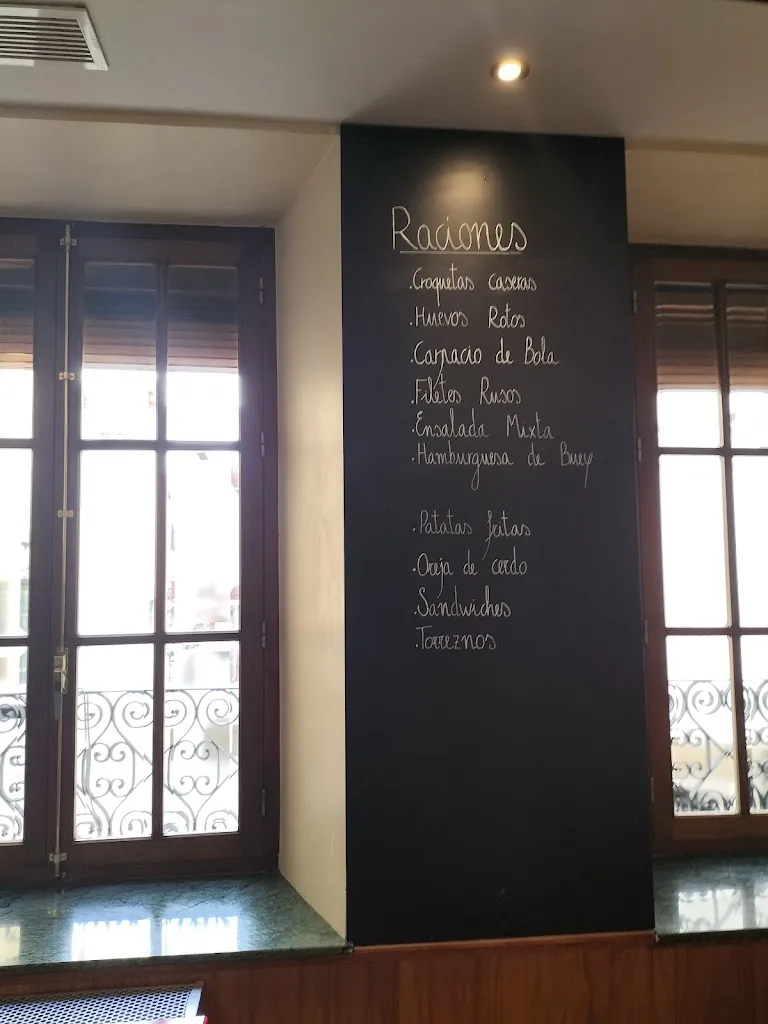 Raciones
.Croquetas caseras
.Huevos Rotos
.Carpacio de Bola
.Filetes Rusos
.Ensalada Mixta
.Hamburguesa de Buey
.Patatas fritas
.Oreja de cerdo
.Sandwiches
.Torreznos